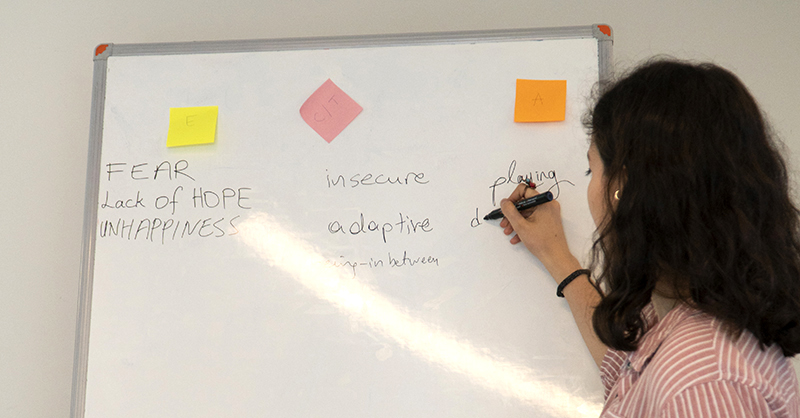 E
A
FEAR
Lack of HOPE
UNHAPPINESS
insecure
adaptive
in between
playing
d